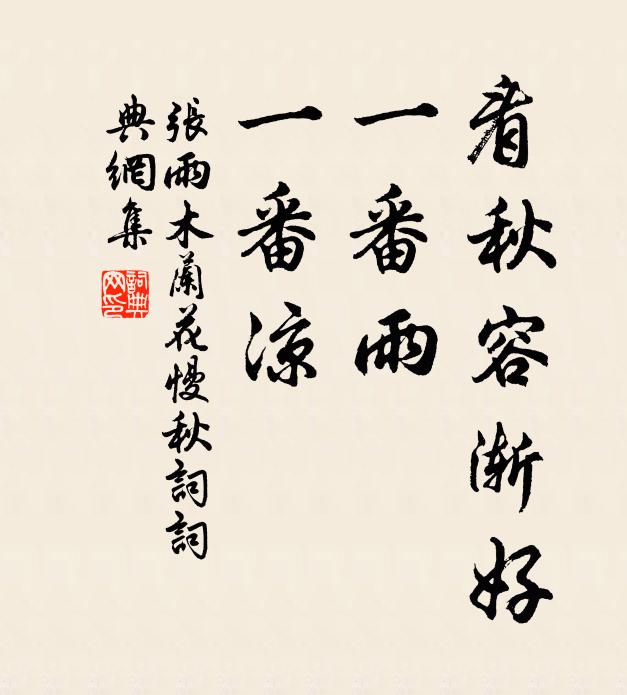 看秋容漸好
一番雨
一番涼
張雨木蘭花慢秋詞詞
典網集
詞典網印